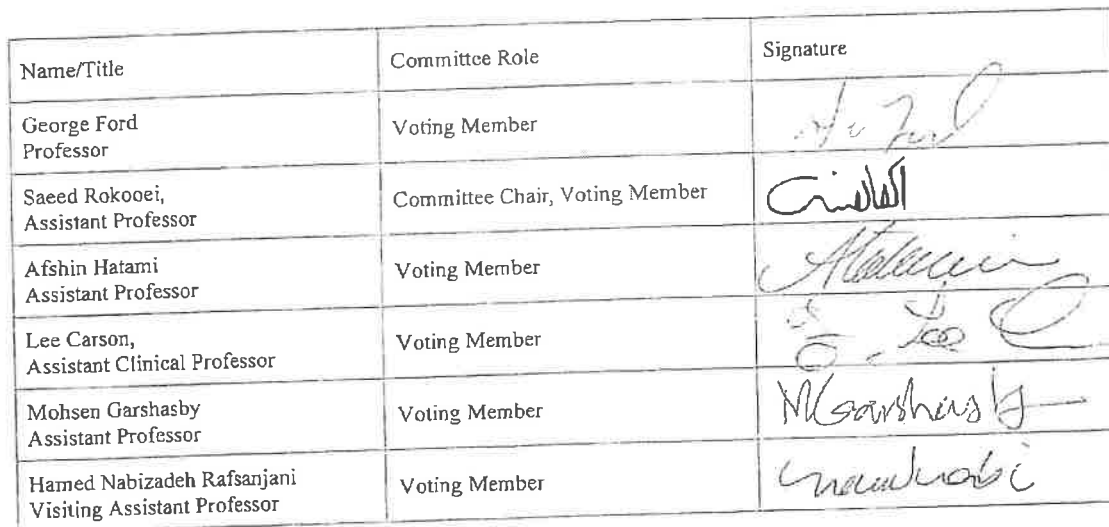 Name/Title
Committee Role
Signature
George Ford
Professor
Voting Member
Saeed Rokooei,
Assistant Professor
Committee Chair, Voting Member
Afshin Hatami
Assistant Professor
Voting Member
Lee Carson,
Assistant Clinical Professor
Voting Member
Mohsen Garshasby
Assistant Professor
Voting Member
MGarshasby
Hamed Nabizadeh Rafsanjani
Visiting Assistant Professor
Voting Member